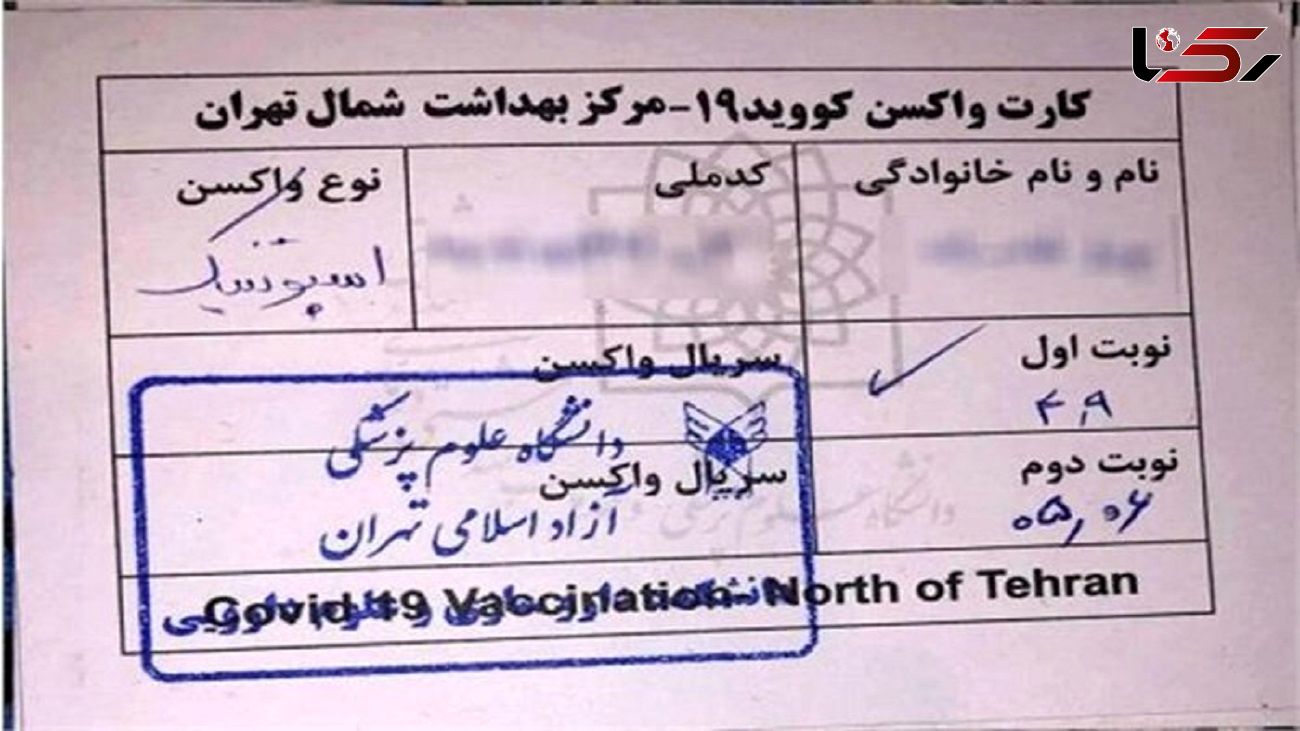 رکنا
کارت واکسن کووید۱۹-مرکز بهداشت شمال تهران
نام و نام خانوادگی
کدملی
نوع واکسن
اسپوتنیک
نوبت اول
۴٫۹
سریال واکسن
نوبت دوم
۰۵٫۰۶
سریال واکسن
دانشگاه علوم پزشکی
آزاد اسلامی تهران
Covid 19 Vaccination- North of Tehran